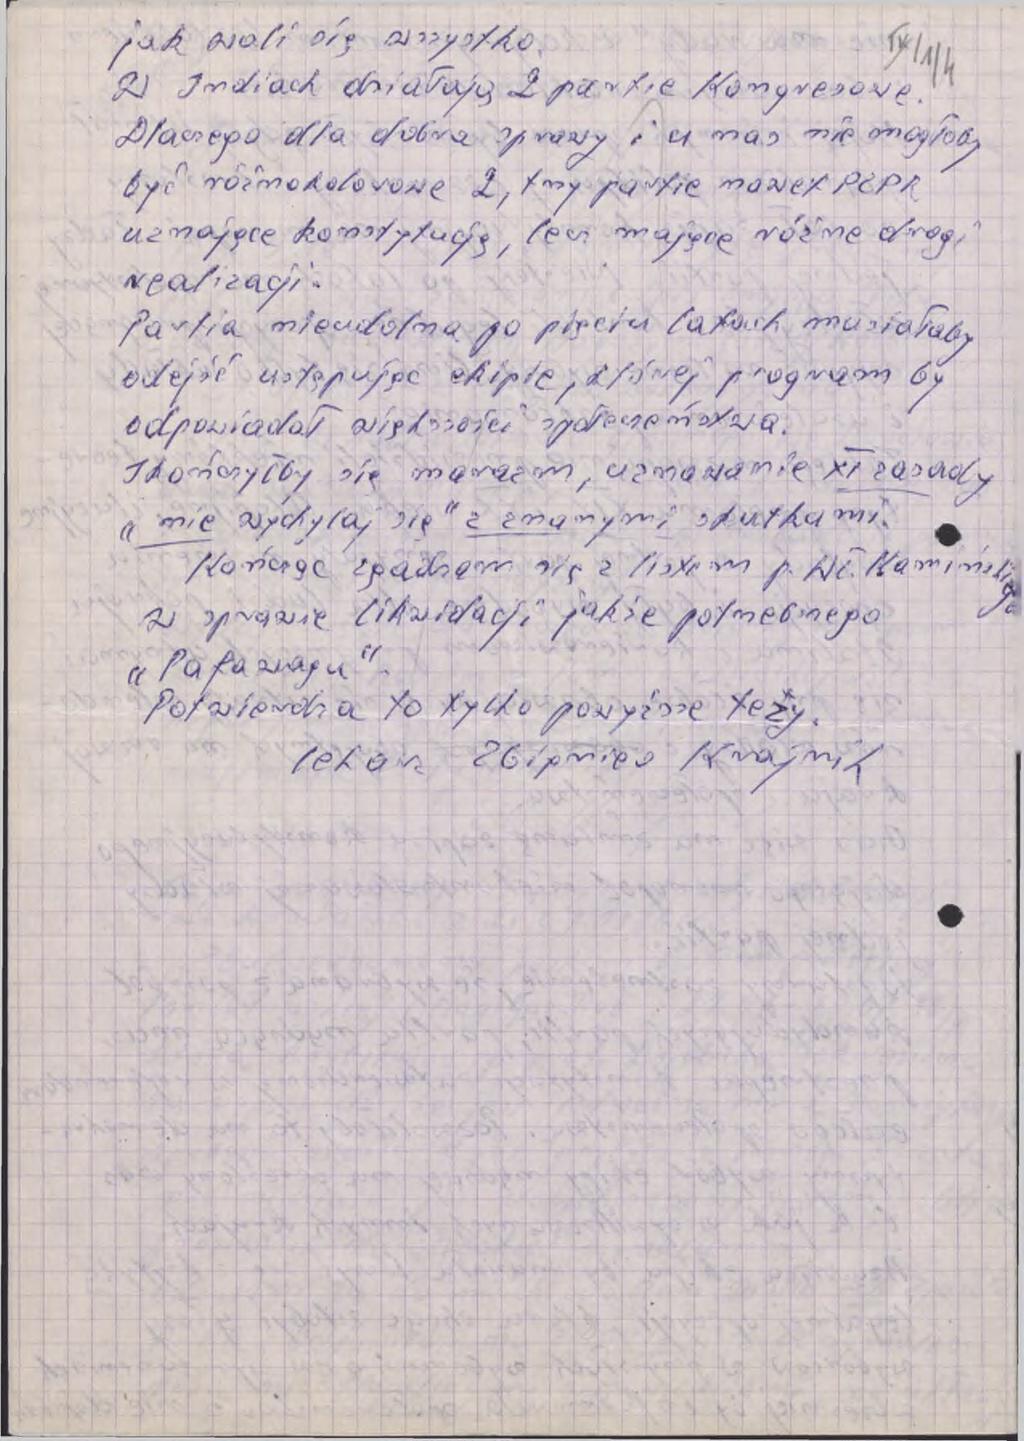 IX/1/4
jak wali się wszystko.
W Indiach działają 2 partie Kongresowe.
Dlaczego dla dobra sprawy i u nas nie mogłoby
być różnokolorowe 2, trzy partie nawet PZPR
uznające konstytucję, lecz mające różne drogi
realizacji.
Partia nieudolna po pięciu latach musiałaby
odejść ustępując ekipie, której program by
odpowiadał większości społeczeństwa.
Skończyłby się marazm, uznawanie XI zasady
„nie wychylaj się" z znanymi skutkami.
Kończąc zgadzam się z listem p. Wł. Kamińskiego
w sprawie likwidacji jakże potrzebnego
„Pafawagu".
Potwierdza to tylko powyższe tezy.
lekarz Zbigniew Krajnik